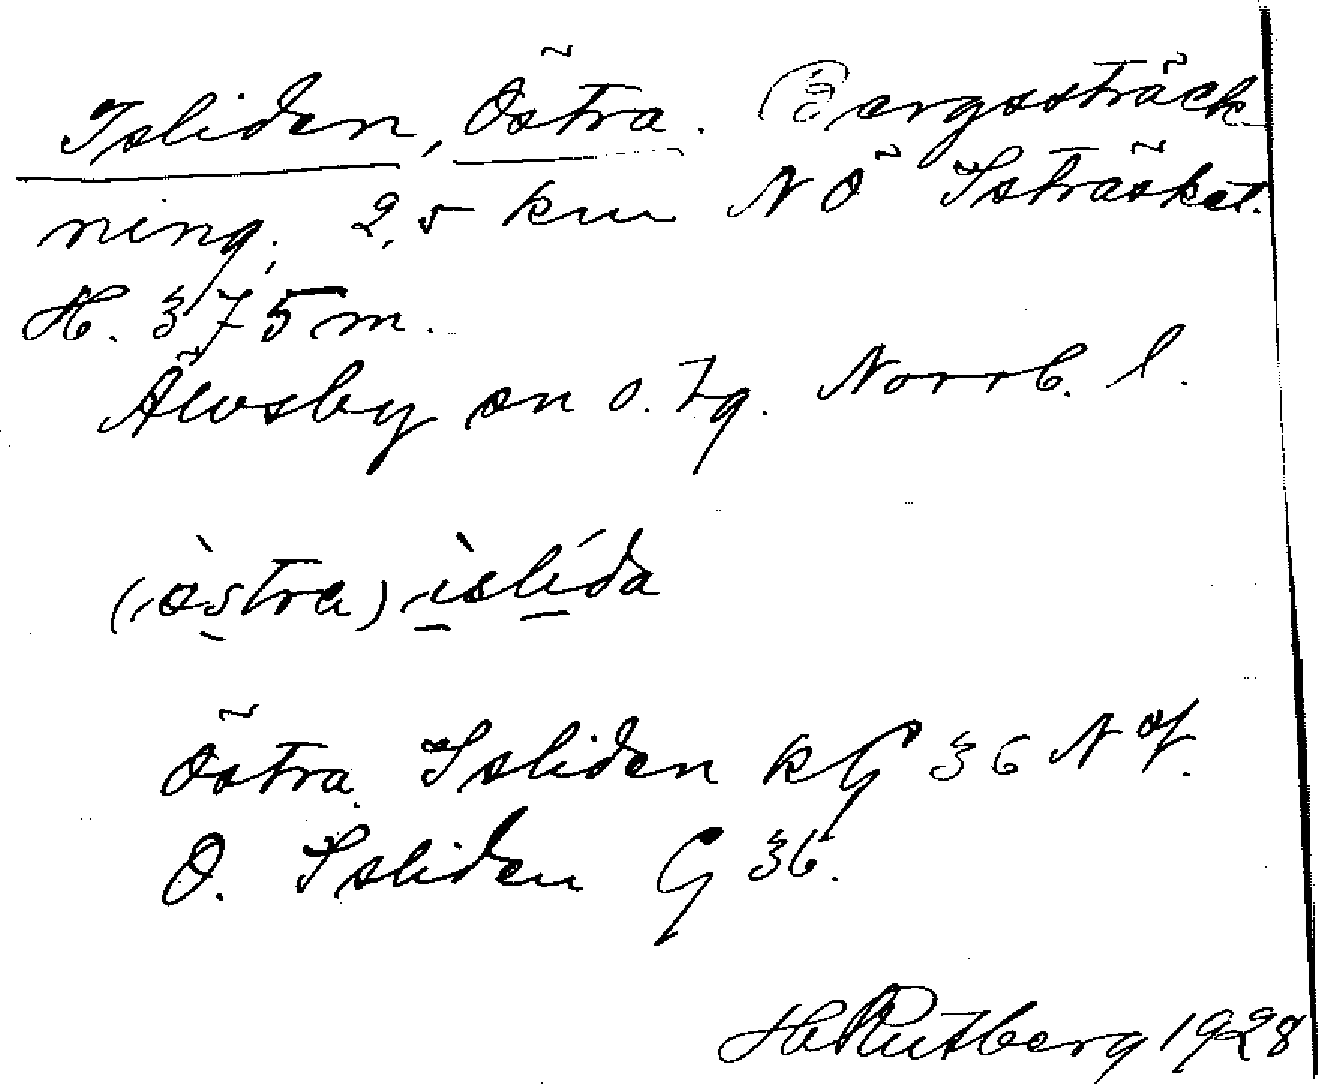 Isliden, Östra. Bergssträck-
ning, 2,5 km NÖ Isträsket.
H. 375 m.
Älvsby sn o. tg. Norrb. l.
(östra) ìslída
Östra Isliden kG 36 NV.
Ö. Isliden G 36.
H. Rutberg 1928